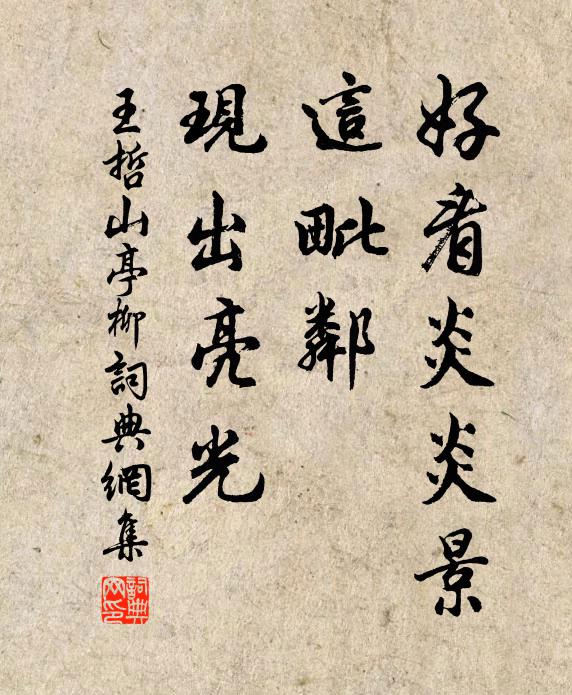 好看炎炎景
這毗鄰
現出亮光
王哲山亭柳詞典網集
詞典
网印